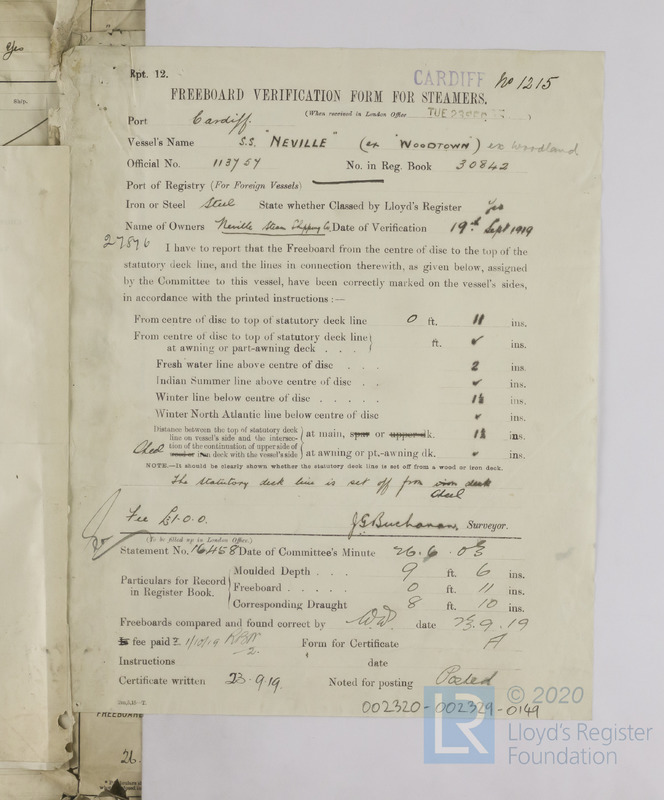 Yes
Ship.
Rpt. 12.
CARDIFF No 1215
FREEBOARD VERIFICATION FORM FOR STEAMERS.
(When received in London Office TUE 23 DEC )
Port Cardiff.
Vessel's Name S.S. "NEVILLE" (ex "WOODTOWN") ex Woodland
Official No. 113757 No. in Reg. Book 30842
Port of Registry (For Foreign Vessels)
Iron or Steel Steel State whether Classed by Lloyd's Register Yes
Name of Owners Neville Steam Shipping Co. Date of Verification 19th Sept 1919
27876 I have to report that the Freeboard from the centre of disc to the top of the
statutory deck line, and the lines in connection therewith, as given below, assigned
by the Committee to this vessel, have been correctly marked on the vessel's sides,
in accordance with the printed instructions :—
From centre of disc to top of statutory deck line 0 ft. 11 ins.
From centre of disc to top of statutory deck line
at awning or part-awning deck . . . ft. ✓ ins.
Fresh water line above centre of disc . . . 2 ins.
Indian Summer line above centre of disc . . ✓ ins.
Winter line below centre of disc . . . . . 1½ ins.
Winter North Atlantic line below centre of disc ✓ ins.
Distance between the top of statutory deck
line on vessel's side and the intersec-
tion of the continuation of upper side of
wood or iron deck with the vessel's side
Steel
at main, spar or upper dk. 1½ ins.
at awning or pt.-awning dk. ✓ ins.
NOTE.—It should be clearly shown whether the statutory deck line is set off from a wood or iron deck.
The Statutory deck line is set off from iron deck
Steel
Fee £1.0.0. J G Buchanan, Surveyor.
(To be filled up in London Office.)
Statement No. 16458 Date of Committee's Minute 26.6.03
Particulars for Record
in Register Book.
Moulded Depth . . . 9 ft. 6 ins.
Freeboard . . . . . 0 ft. 11 ins.
Corresponding Draught 8 ft. 10 ins.
Freeboards compared and found correct by W.W. date 23.9.19
Is fee paid ? 1/10/19 Form for Certificate A
Instructions date
Certificate written 23.9.19. Noted for posting Posted
002320-002329-0149
FREEBOARD
26.
LR
© 2020
Lloyd's Register
Foundation